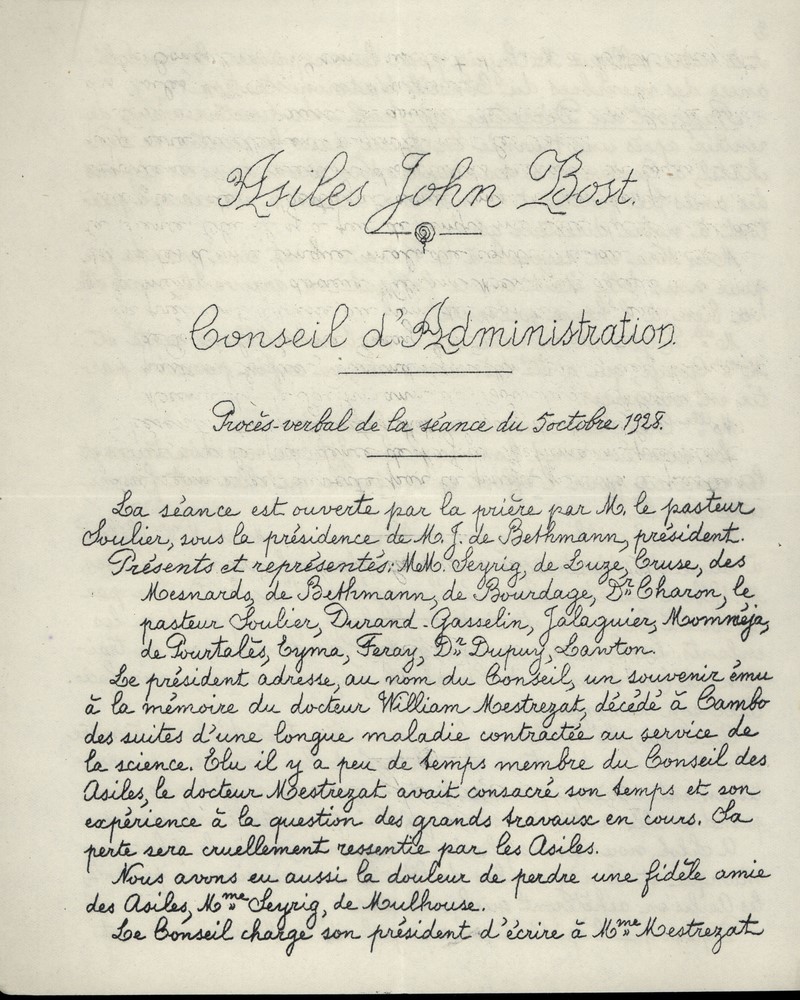 Asiles John Bost.
Conseil d'Administration.
Procès-verbal de la séance du 5 octobre 1928.
La séance est ouverte par la prière par M. le pasteur
Soulier, sous la présidence de M. J. de Bethmann, président.
Présents et représentés: MM. Seyrig, de Luze, Cruse, des
Mesnards, de Bethmann, de Bourdage, Dr Charon, le
pasteur Soulier, Durand-Gasselin, Jalaguier, Momméja,
de Pourtalès, Eyma, Feray, Dr Dupuy, Lawton.
Le président adresse, au nom du Conseil, un souvenir ému
à la mémoire du docteur William Mestrezat, décédé à Cambo
des suites d'une longue maladie contractée au service de
la science. Elu il y a peu de temps membre du Conseil des
Asiles, le docteur Mestrezat avait consacré son temps et son
expérience à la question des grands travaux en cours. Sa
perte sera cruellement ressentie par les Asiles.
Nous avons eu aussi la douleur de perdre une fidèle amie
des Asiles, Mme Seyrig, de Mulhouse.
Le Conseil charge son président d'écrire à Mme Mestrezat